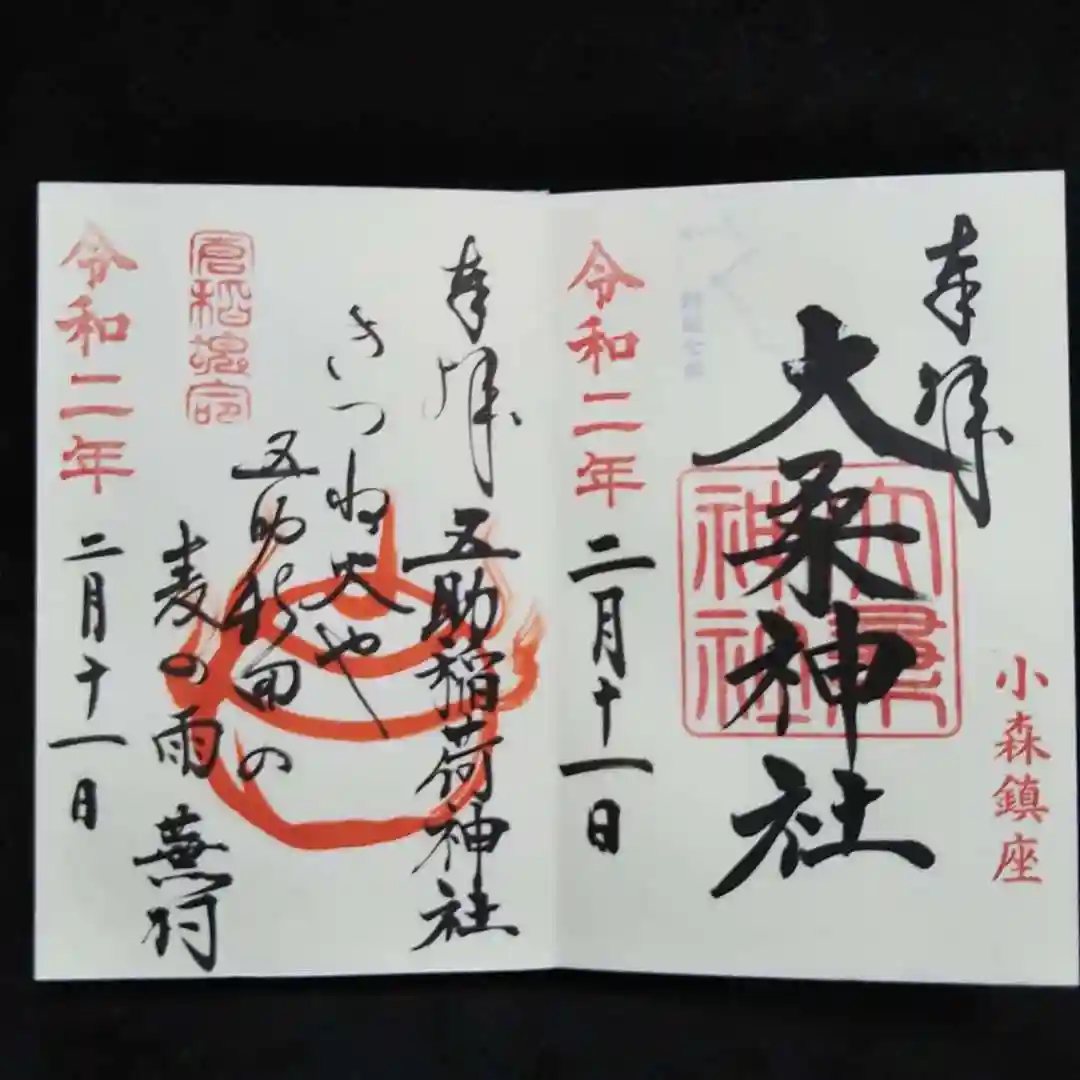 奉拝
小森鎮座
大桑神社
大桑神社
令和二年二月十一日
奉拝
五助稲荷神社
きつね火や
五助新田の
麦の雨
蕪村
倉稲魂命
令和二年二月十一日